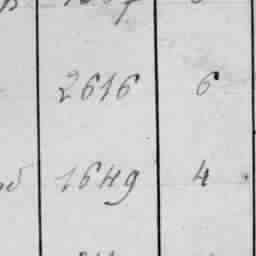 2616 6
1649 4